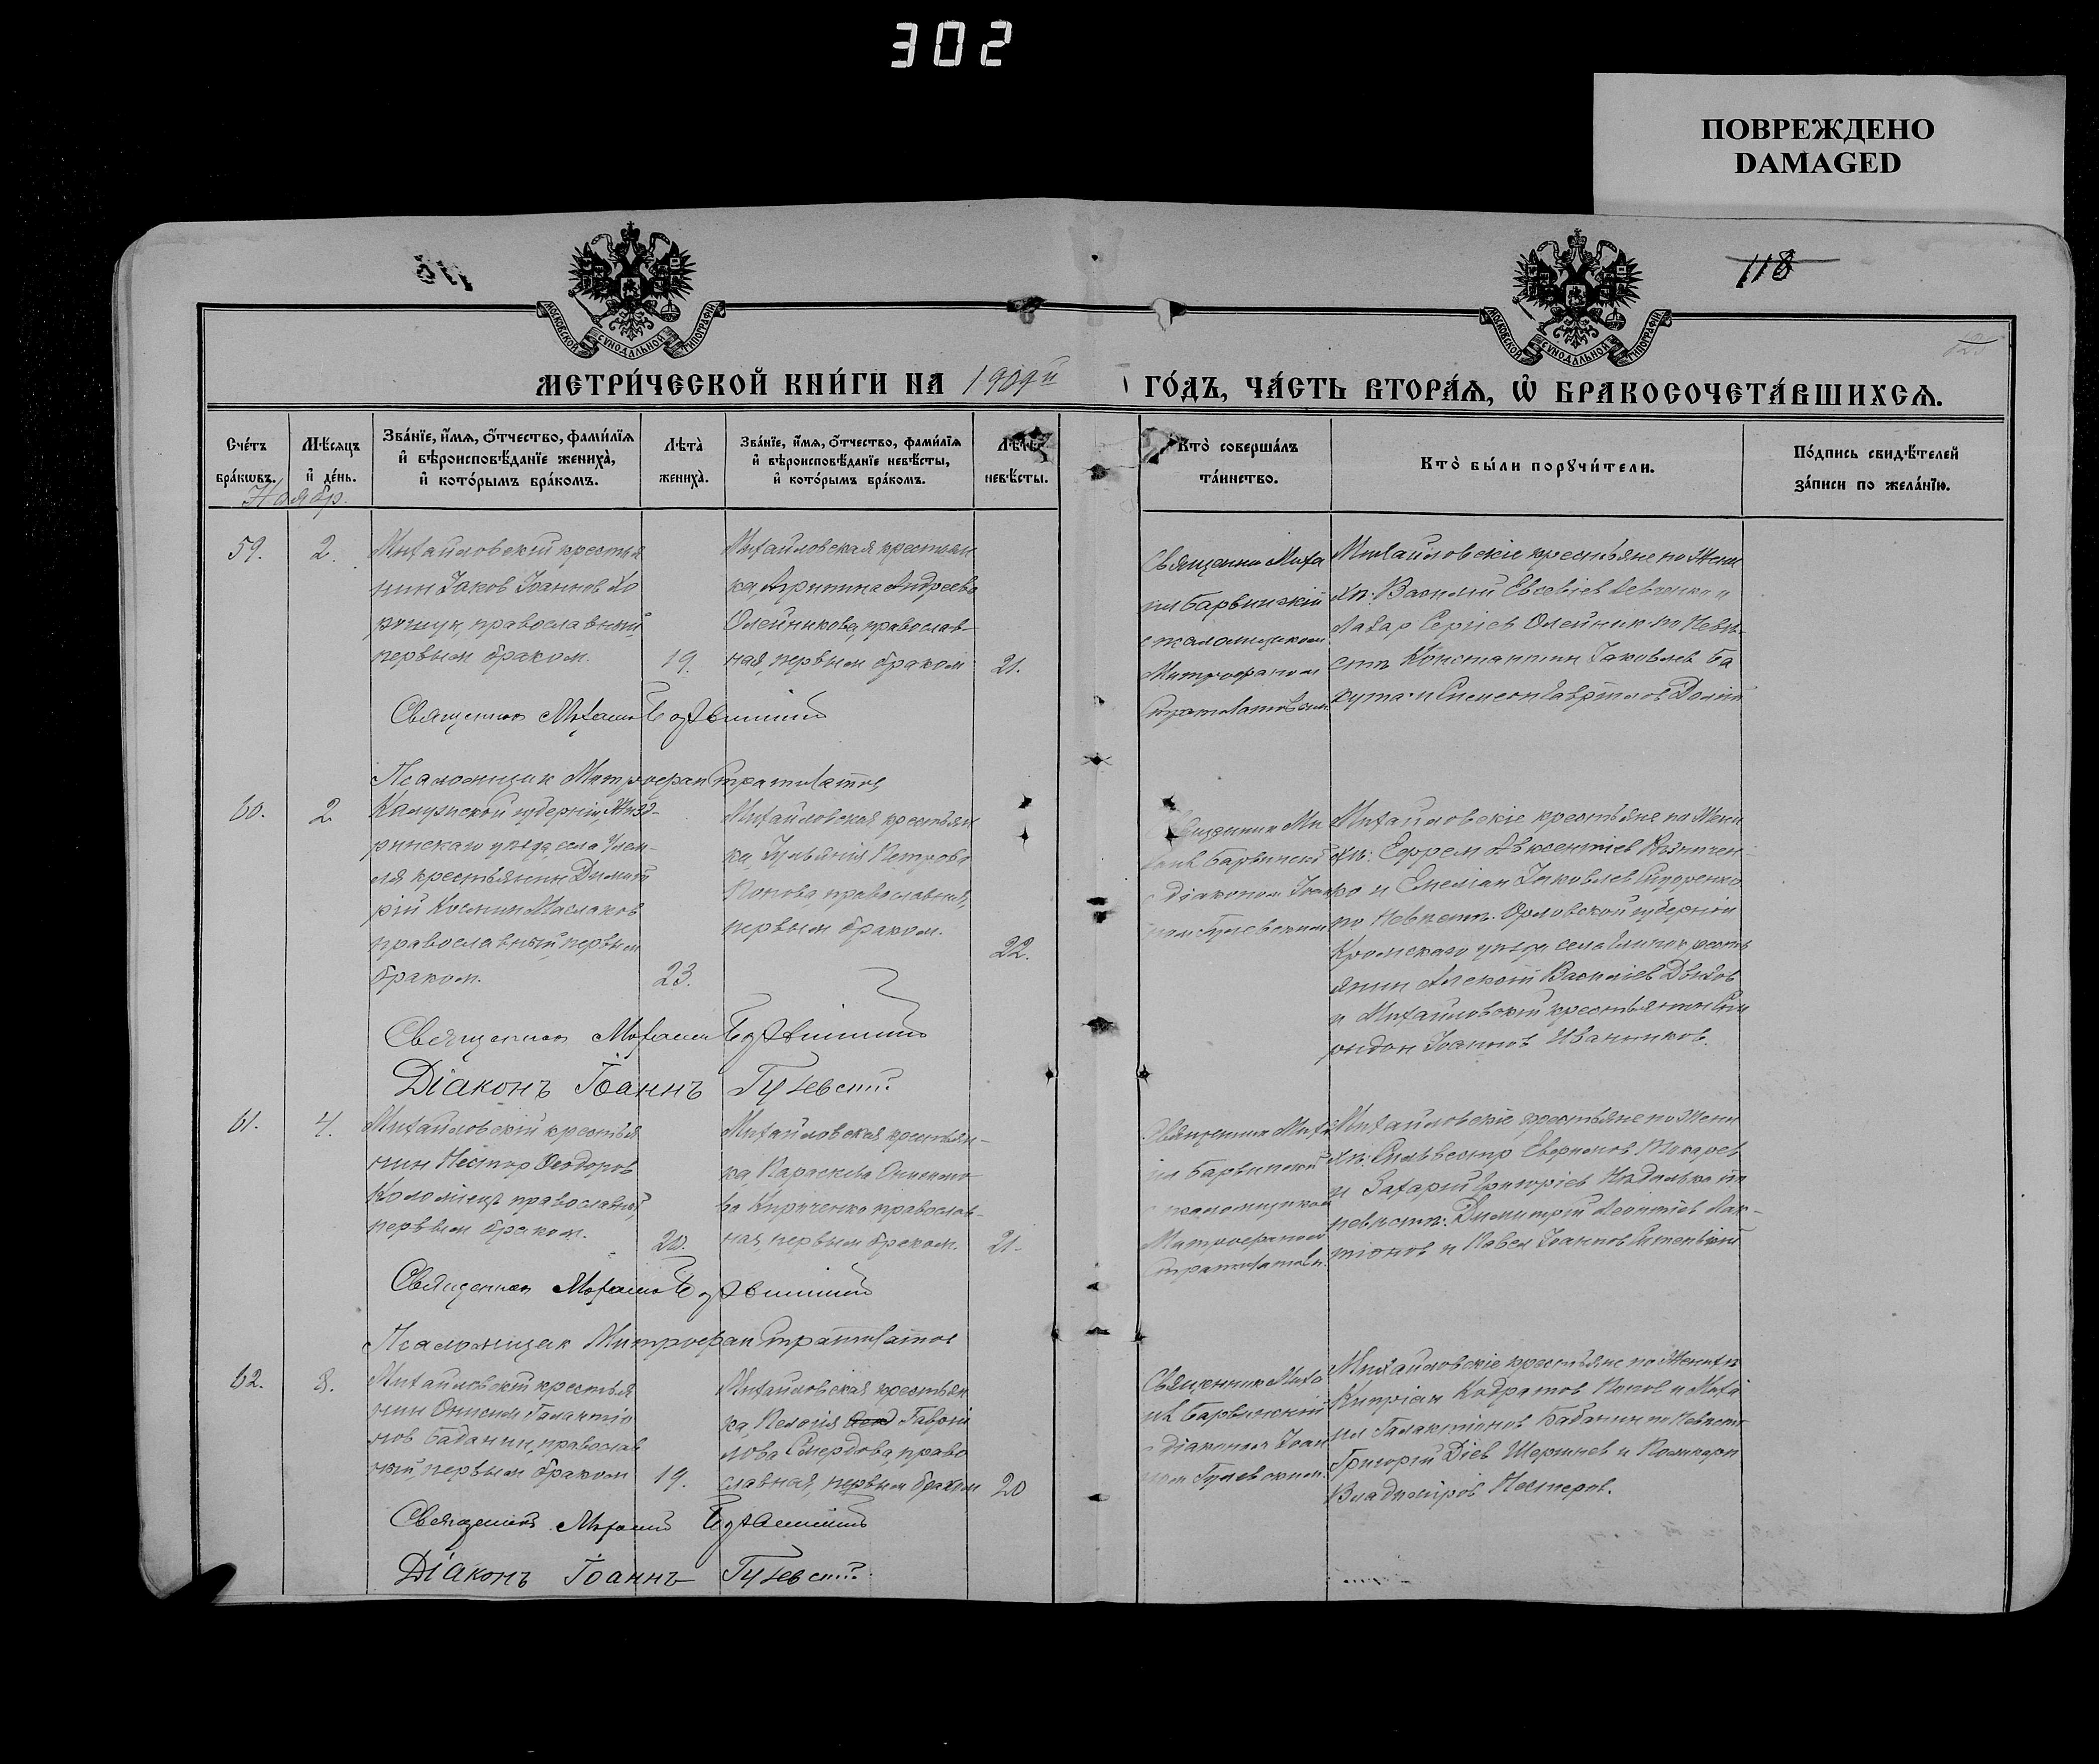 302
ПОВРЕЖДЕНО
DAMAGED
118
МОСКОВСКОЙ СѴНОДАЛЬНОЙ ТИПОГРАФІИ
МОСКОВСКОЙ СѴНОДАЛЬНОЙ ТИПОГРАФІИ
МЕТРИ́ЧЕСКОЙ КНИ́ГИ НА 1909й
ГО́ДЪ, ЧА́СТЬ ВТОРА́Ѧ, Ѡ҆ БРАКОСОЧЕТА́ВШИХСѦ.
Счéтъ
бра́кѡвъ.
Мѣ́сяцъ
и҆ де́нь.
Зва́нїе, и҆́мѧ, ѻ҆́тчество, фами́лїѧ
и҆ вѣроисповѣ́данїе жениха̀,
и҆ кото́рымъ бра́комъ.
Лѣта̀
жениха̀.
Зва́нїе, и҆́мѧ, ѻ҆́тчество, фами́лїѧ
и҆ вѣроисповѣ́данїе невѣ́сты,
и҆ кото́рымъ бра́комъ.
невѣ́сты.
Кто̀ соверша́лъ
та́инство.
Кто̀ бы́ли порꙋчи́тели.
По́дпись свидѣ́телей
за́писи по жела́нїю.
Ноябр.
59.
2.
Михайловскій крестья
нин Іаков Іоаннов
православный,
первым браком.
19.
Михайловская крестьян
ка, Агрипина Андреева
Олейникова, православ-
ная, первым браком
21.
Священник Миха
ил Барвинскій
с псаломщиком
Митрофаном
Михайловскіе крестьяне по Жени
хѣ: Василій Евсевіев Левченко и
Лазар Сергіев Олейник по Невѣ-
стѣ Константин Іаковлев Ба
Священник Михаил Барвинский
Псаломщик Митрофан
60.
2.
Калужской губерніи,
уѣзда, села
крестьянин Димит
рій Космин Маслаков
православный, первым
браком.
23.
Михайловская крестьян
ка, Іуліанія Петрова
Попова, православная,
первым браком.
22.
Священник Ми
хаил Барвинскій
с діаконом Іоан
ном Гулевским
Михайловскіе крестьяне по Жени
хѣ: Ефрем Авксентіев
ко и Емеліан Іаковлев Сидоренко
по Невѣстѣ. Орловской губерніи
Кромскаго уѣзда села кресть
янин Алексій Василіев
и Михайловскій крестьянин Спи
ридон Іоаннов Иванников.
Священник Михаил Барвинский
Діаконъ Іоаннъ Гулевскій
61.
4.
Михайловскій крестья
нин Нестор Ѳеодоров
Коломіец православный,
первым браком.
20.
Михайловская крестьян-
ка, Параскева
ва Кириченко православ-
ная, первым браком.
21.
Священник Миха
ил Барвинский
с псаломщиком
Митрофаном
Михайловскіе крестьяне по Жени
хѣ: Сильвестр Токарев
и Захарій Григоріев по
невѣстѣ: Димитрій Леонтіев Лак-
тіонов и Павел Іоаннов
Священник Михаил Барвинский
Псаломщик Митрофан
62.
8.
Михайловскій крестья
нин Галактіо
нов Бабанин, православ
ный, первым браком
19.
Михайловская крестьян
ка, Пелагія Гаврии
лова Смердова, право
славная, первым браком
20
Священник Миха
ил Барвинский
с діаконом Іоан
ном Гулевским.
Михайловскіе крестьяне по Женихѣ
Кипріан Кодратов Попов и Миха
ил Галактіонов Бабанин по Невѣстѣ
Григорій
Владиміров Нестеров.
Священник Михаил Барвинский
Діаконъ Іоаннъ Гулевскій